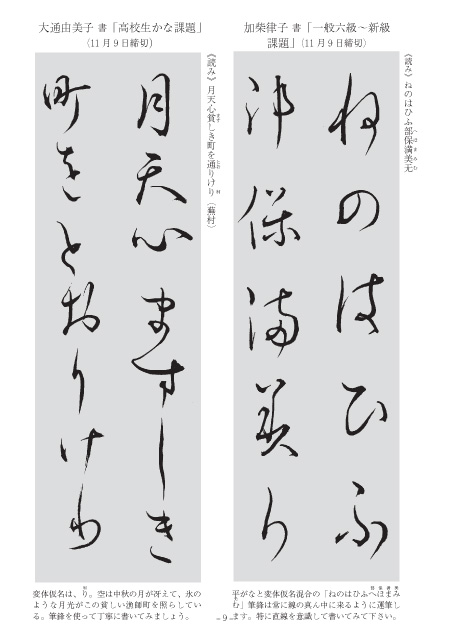 加柴律子 書「一般六級～新級
課題」(11月9日締切)
《読み》ねのはひふ部保満美无
ねのはひふ
部保満美无
平がなと変体仮名混合の「ねのはひふへほまみ
む」筆鋒は常に線の真ん中に来るように運筆し
ます。特に直線を意識して書いてみて下さい。
大通由美子 書「高校生かな課題」
(11月9日締切)
《読み》月天心貧しき町を通りけり（蕪村）
月天心まずしき
町をとおりけり
変体仮名は、り。空は中秋の月が冴えて、氷の
ような月光がこの貧しい漁師町を照らしてい
る。筆鋒を使って丁寧に書いてみましょう。
- 9 -